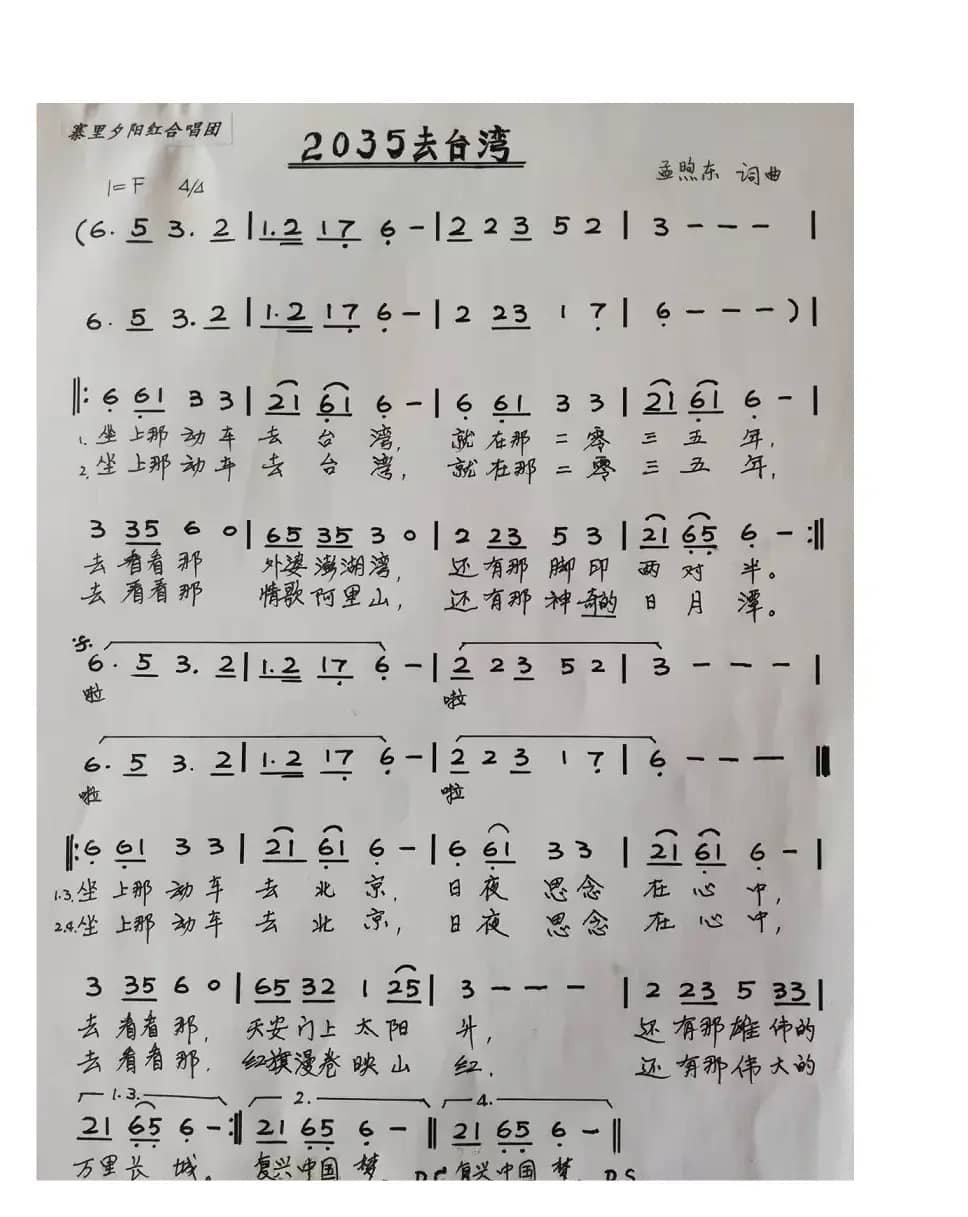 寨里夕阳红合唱团
2035去台湾
1=F 4/4
孟煦东 词曲
(6. 5 3. 2 | 1.2 17 6 - | 2 2 3 5 2 | 3 - - - |
6. 5 3. 2 | 1.2 17 6 - | 2 23 1 7 | 6 - - - ) |
‖: 6 61 3 3 | 21 61 6 - | 6 61 3 3 | 21 61 6 - |
1. 坐上那动车 去 台 湾, 就在那二零 三 五 年,
2. 坐上那动车 去 台 湾, 就在那二零 三 五 年,
3 35 6 0 | 65 35 3 0 | 2 23 5 3 | 21 65 6 - :‖
去看看那 外婆澎湖湾, 还有那脚印 两 对 半。
去看看那 情歌阿里山, 还有那神奇的 日 月 潭。
6. 5 3. 2 | 1.2 17 6 - | 2 2 3 5 2 | 3 - - - |
啦 啦
6. 5 3. 2 | 1.2 17 6 - | 2 2 3 1 7 | 6 - - - ‖
啦 啦
‖: 6 61 3 3 | 21 61 6 - | 6 61 3 3 | 21 61 6 - |
1.3. 坐上那动车 去 北 京, 日夜思念 在 心 中,
2.4. 坐上那动车 去 北 京, 日夜思念 在 心 中,
3 35 6 0 | 65 32 1 25 | 3 - - - | 2 23 5 33 |
去看看那, 天安门上太阳 升, 还有那雄伟的
去看看那. 红旗漫卷映山 红. 还有那伟大的
1.3. 2. 4.
21 65 6 - :‖ 21 65 6 - ‖ 21 65 6 - ‖
万里长城。 复兴中国梦. 复兴中国梦. D.S